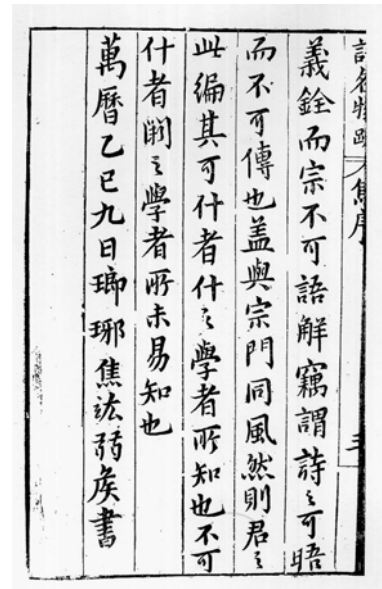 詩名物疏 焦序 三
義銓而宗不可語解竊謂詩之可晤
而不可傳也盖與宗門同風然則君之
此编其可什者什之學者所知也不可
什者闕之學者所未易知也
萬曆乙巳九日瑯琊焦竑弱矦書